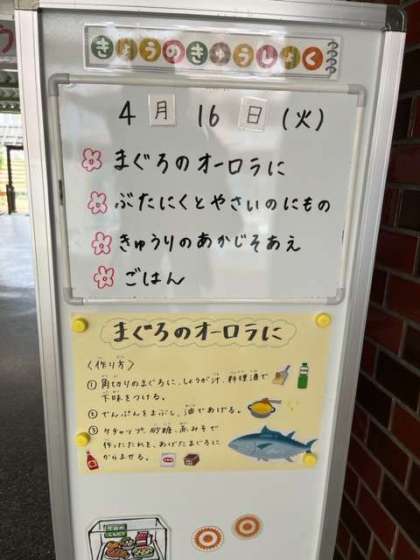 きょうのきゅうしょく
4月16日(火)
まぐろのオーロラに
ぶたにくとやさいのにもの
きゅうりのあかじそあえ
ごはん
まぐろのオーロラに
〈作り方〉
① 角切りのまぐろに、しょうが汁、料理酒で
下味をつける。
② でんぷんをまぶし、油であげる。
③ ケチャップ、砂糖、赤みそで
作ったたれを、あげたまぐろに
からませる。